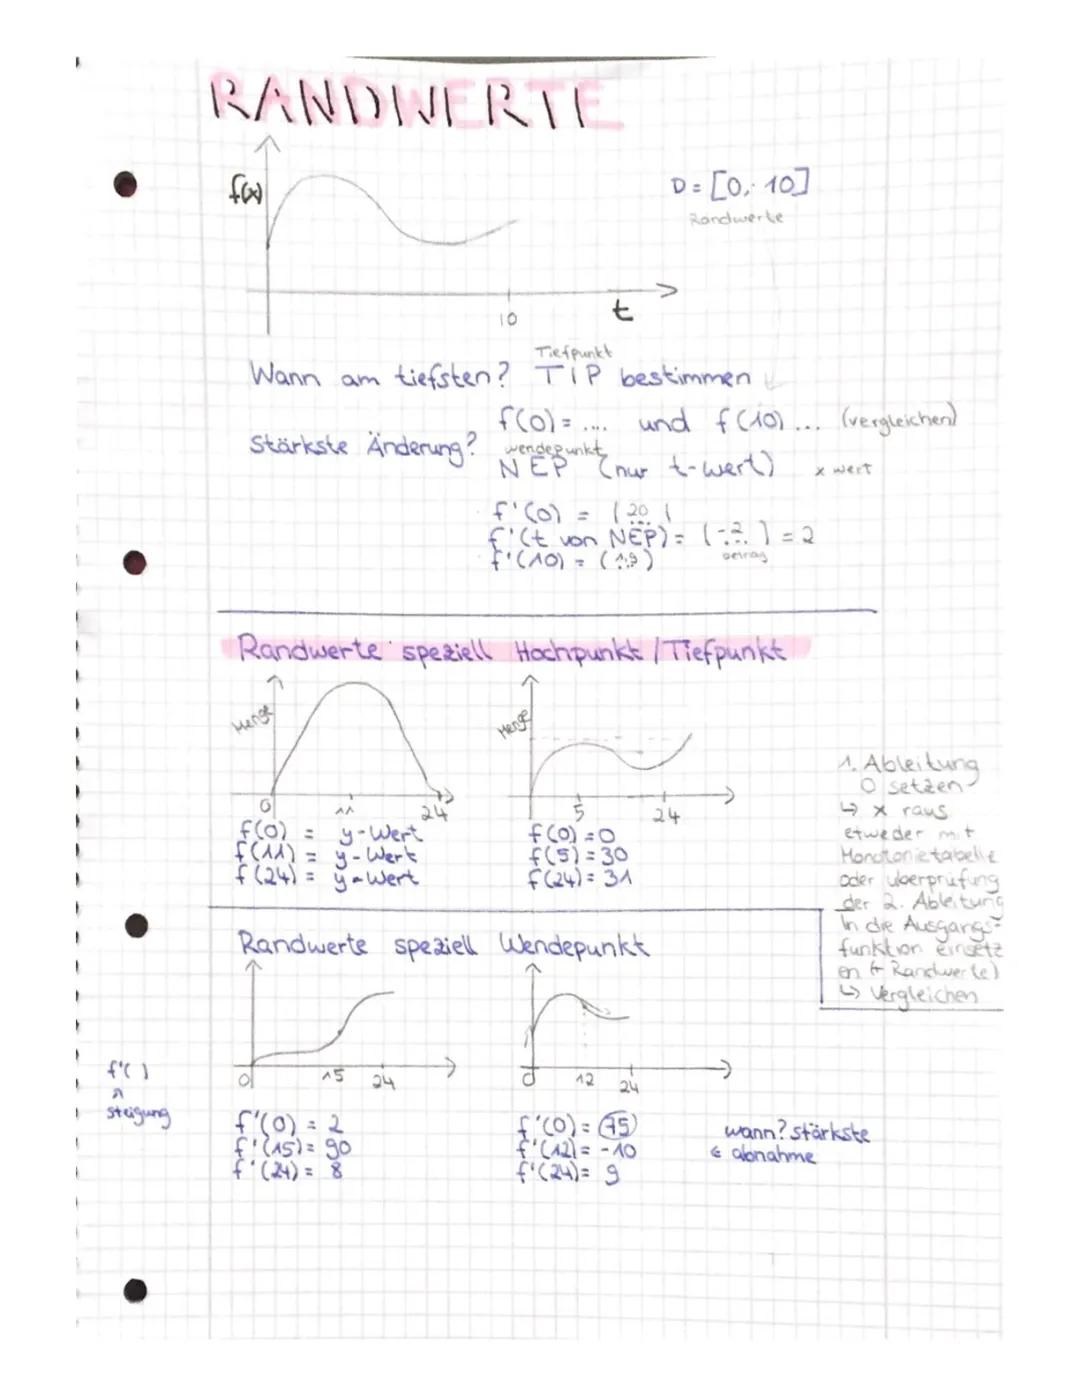 RANDWERTE
f(x)
D = [0; 10]
Randwerte
10
t
Tiefpunkt
Wann am tiefsten? TIP bestimmen
f(0) = .... und f(10) ... (vergleichen)
Stärkste Änderung? wendepunkt
NEP (nur t-wert) x wert
f'(0) = | 20 |
f'(t von NEP) = | -2 | = 2
betrag
f'(10) = (1,9)
Randwerte speziell Hochpunkt / Tiefpunkt
Menge
0 11 24
f(0) = y-Wert
f(11) = y-Wert
f(24) = y-Wert
Menge
5 24
f(0) = 0
f(5) = 30
f(24) = 31
1. Ableitung
0 setzen
↳ x raus
etweder mit
Monotonietabelle
oder überprüfung
der 2. Ableitung
In die Ausgangs-
funktion einsetz
en (+ Randwerte)
↳ Vergleichen
Randwerte speziell Wendepunkt
0 15 24
f'( )
steigung
f'(0) = 2
f'(15) = 90
f'(24) = 8
0 12 24
f'(0) = 75
f'(12) = -10
f'(24) = 9
wann? stärkste
abnahme